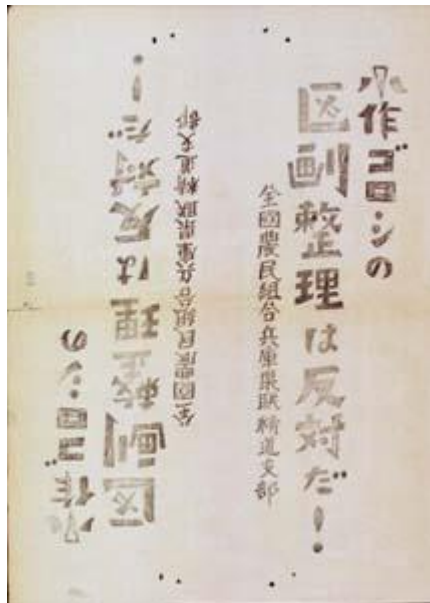 小作ゴロシの
区劃整理は反対だ!
全國農民組合兵庫県聯精道支部
小作ゴロシの
区劃整理は反対だ!
全國農民組合兵庫県聯精道支部